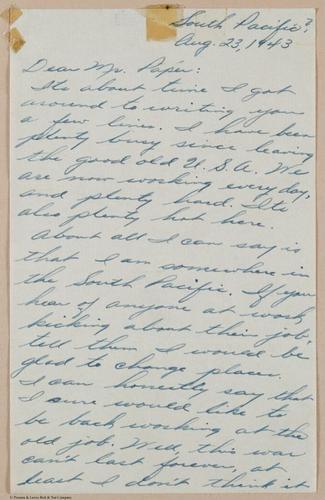 South Pacific?
Aug. 23, 1943
Dear Mr. Paper:
Its about time I got
around to writing you
a few lines. I have been
plenty busy since leaving
the good old U.S.A. We
are now working every day,
and plenty hard. It's
also plenty hot here.
About all I can say is
that I am somewhere in
the South Pacific. If you
hear of anyone at work
kicking about their job,
tell them I would be
glad to change places.
I can honestly say that
I sure would like to
be back working at the
old job. Well, this war
can't last forever, at
least I don't think it